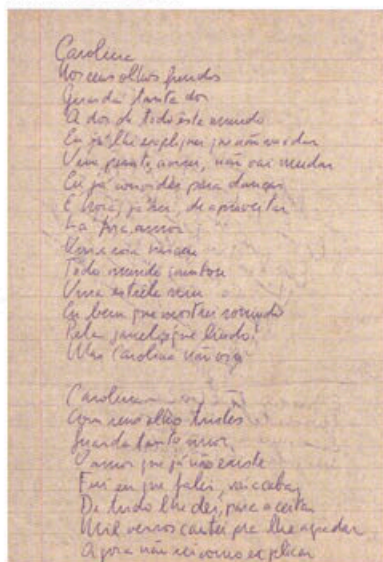 Carolina
Nos seus olhos fundos
Guarda tanta dor
A dor de todo este mundo
Eu já lhe expliquei que não vai dar
Seu pranto não vai mudar
Eu já convidei para dançar
É hora, já sei, de aproveitar
Lá fora, amor
Uma rosa nasceu
Todo mundo sambou
Uma estrela
Eu bem que mostrei sorrindo
Pela janela, que lindo!
Mas Carolina não viu
Carolina
Com seus olhos tristes
Guarda tanto amor
O amor que já não existe
Eu que falei, vai acabar
De tudo lhe dei, para aceitar
Mil versos cantei pra lhe agradar
Agora não sei como explicar